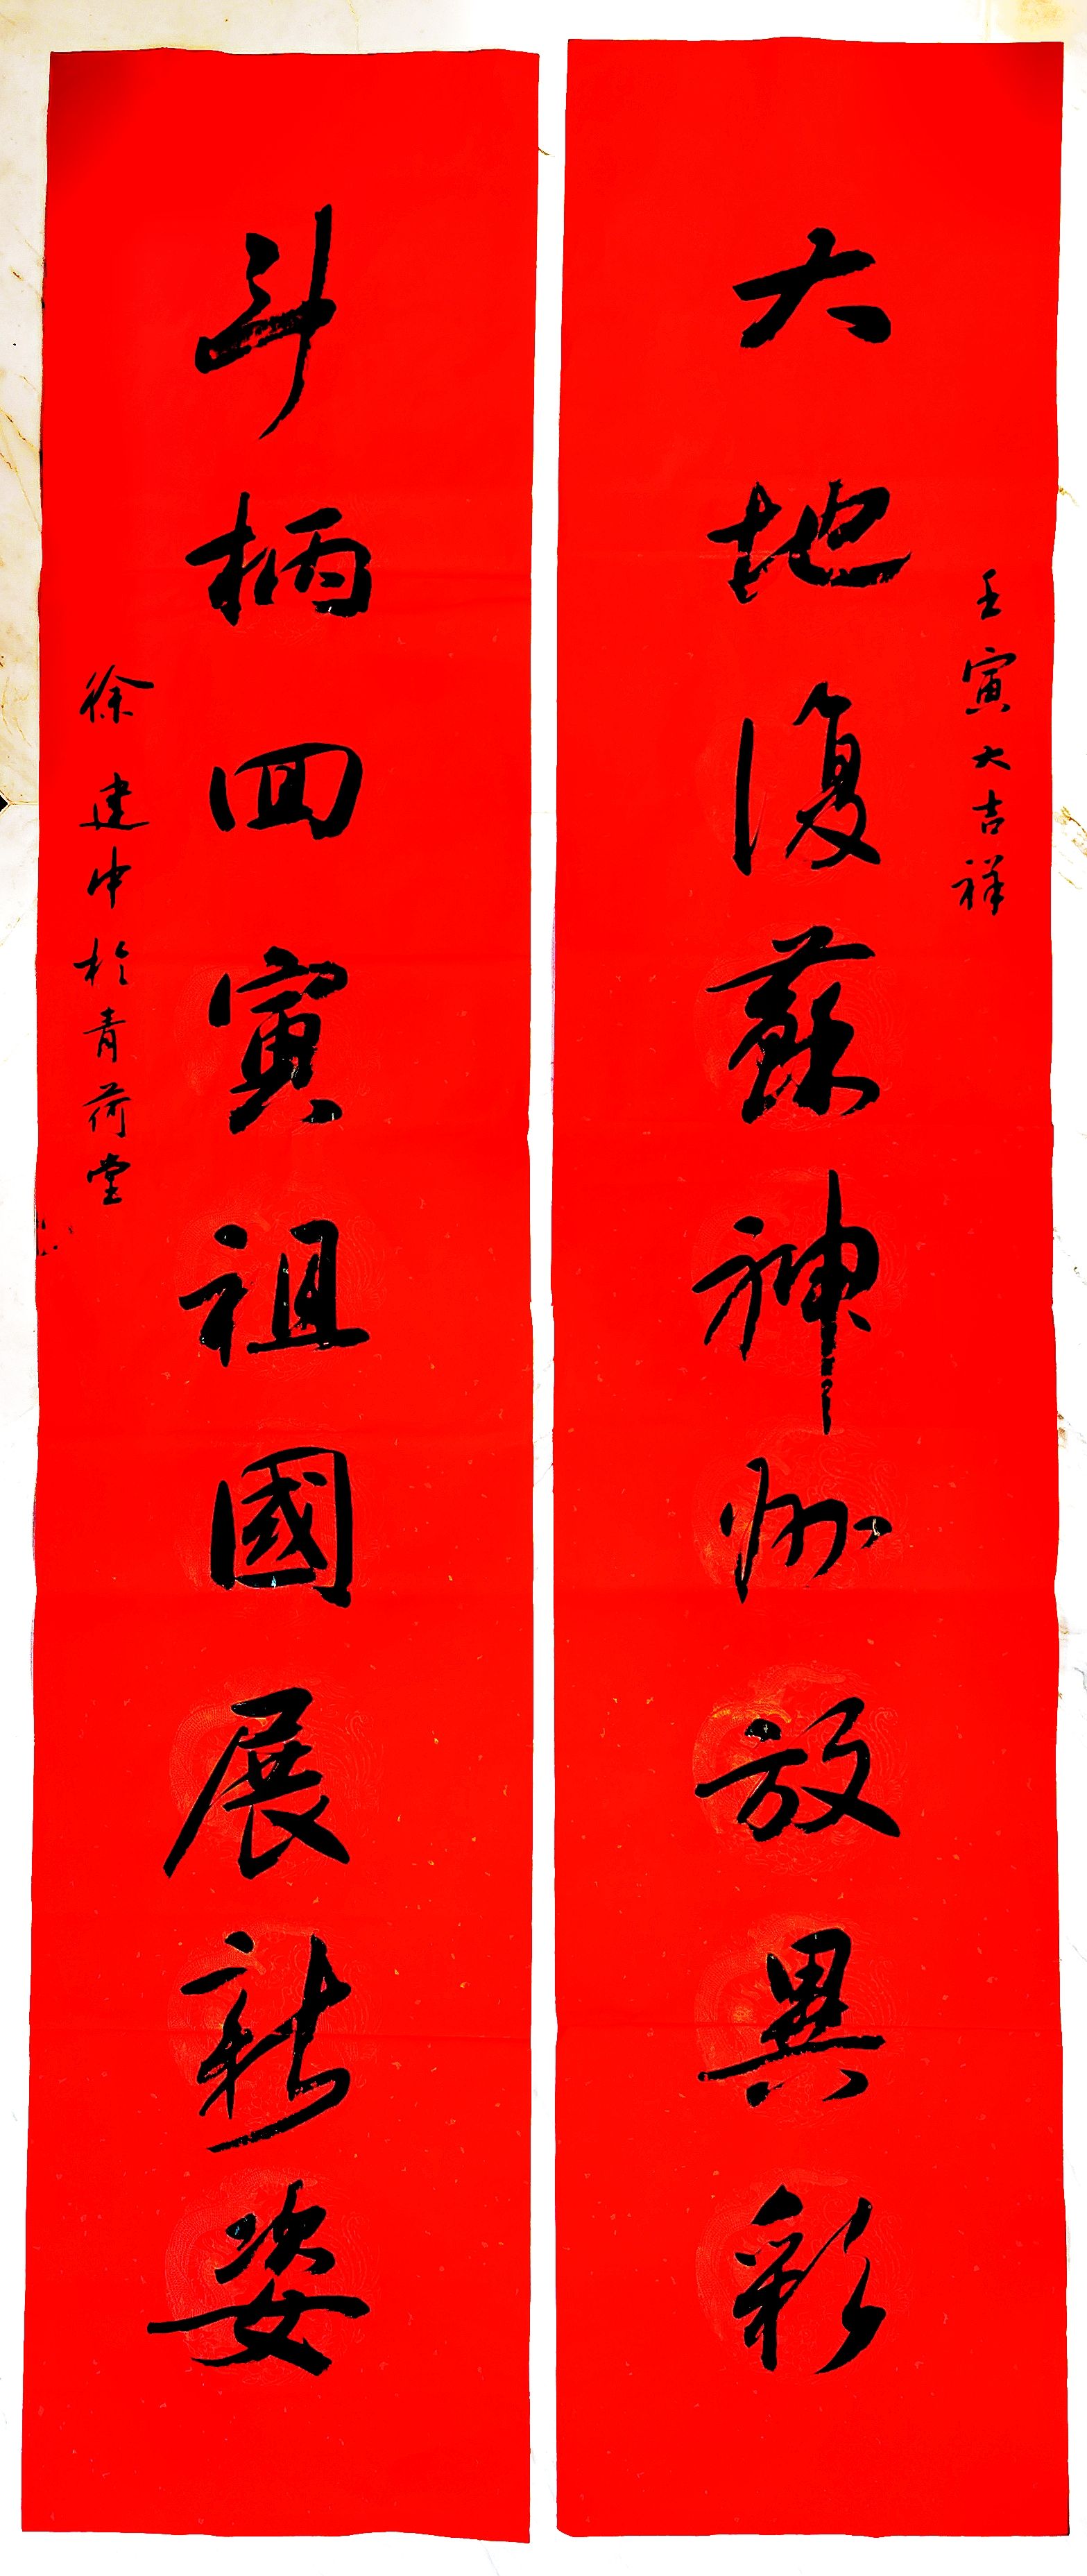 壬寅大吉祥
大地復蘇神州放異彩
斗柄回寅祖國展新姿
徐建中於青荷堂